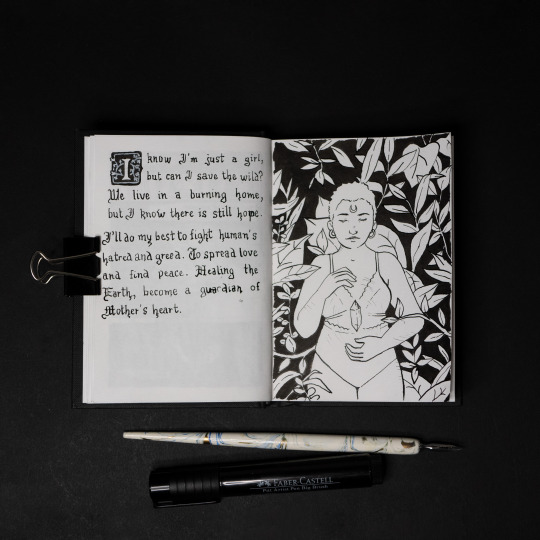 I know I'm just a girl,
but can I save the wild?
We live in a burning home,
but I know there is still hope.
I'll do my best to fight human's
hatred and greed. To spread love
and find peace. Healing the
Earth, become a guardian of
Mother's heart.
FABER CASTELL
Pitt Artist Pen Big Brush